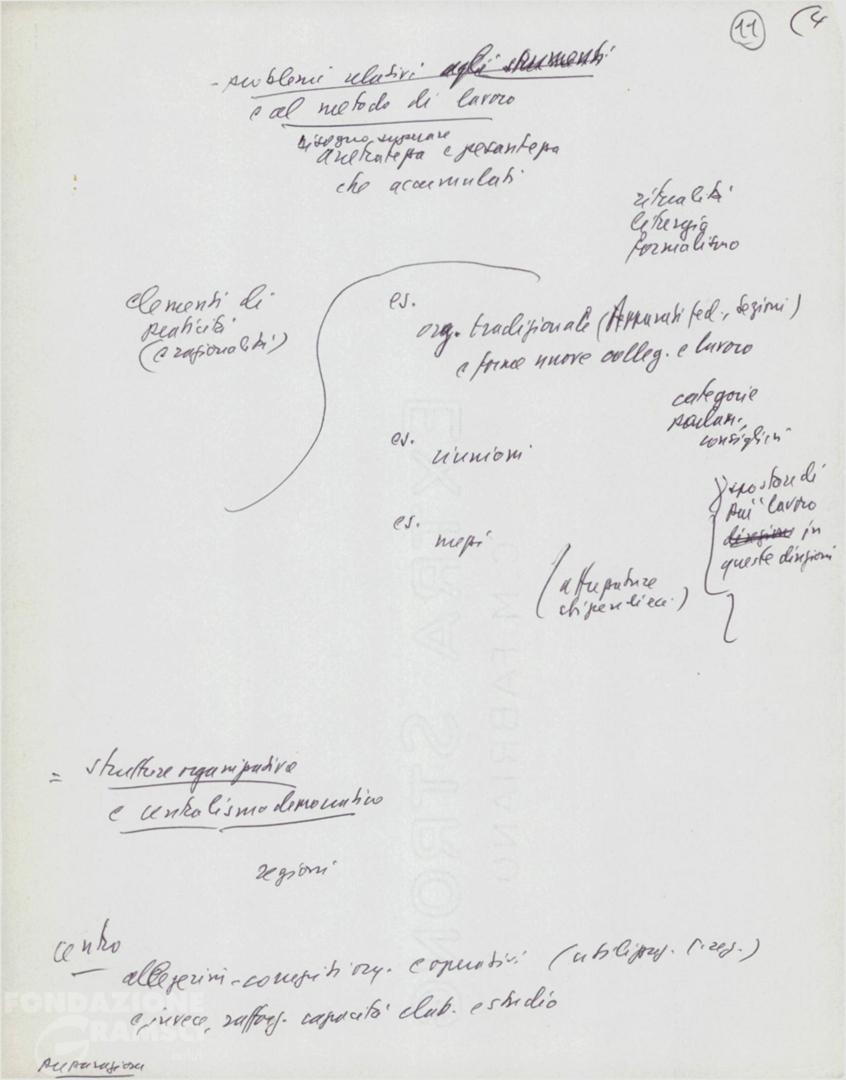 11 (4
- problemi relativi agli strumenti
e al metodo di lavoro
bisogna superare
arretratezza e pesantezza
che accumulati
ritualità
liturgia
formalismo
elementi di
praticità
(e razionalità)
es.
org. tradizionale (Apparati fed., sezioni)
e forme nuove colleg. e lavoro
categorie
parlam.
consiglieri
es.
riunioni
es.
mezzi
(attrezzature
stipendi ecc.)
spostare di
più il lavoro
in
queste direzioni
= strutture organizzative
e centralismo democratico
regioni
centro
compiti org. e operativi (utilizzaz. C. reg.)
e, invece, rafforz. capacità elab. e studio
preparazione
EXTRA STRONG
FABRIANO
FONDAZIONE
GRAMSCI